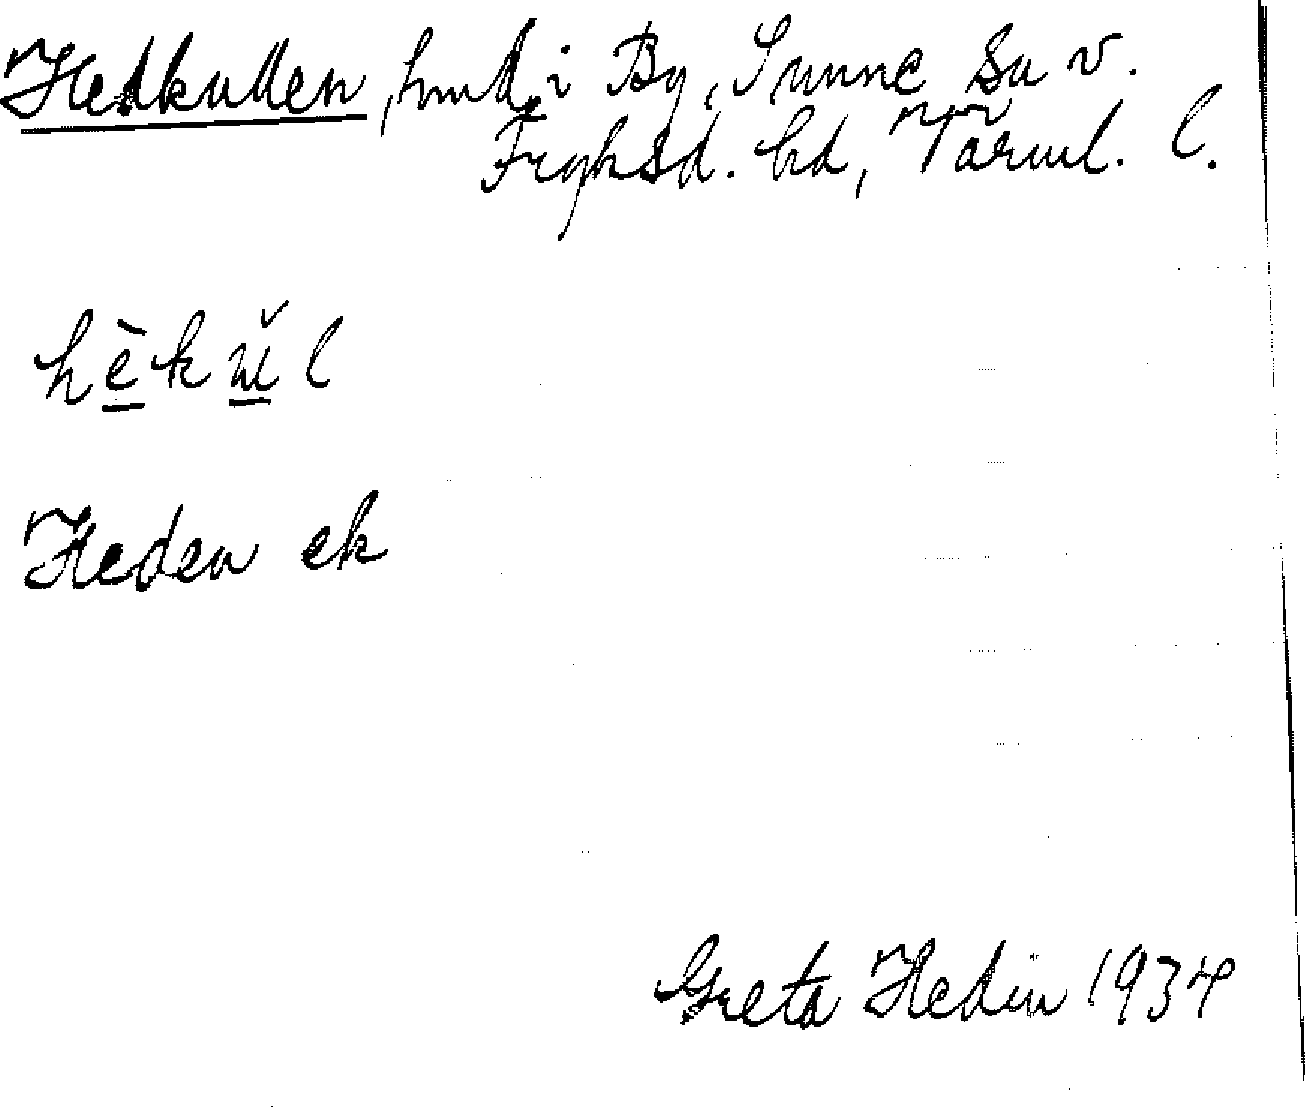 Hedkullen, hmd. i By, Sunne sn v.
Fryksd. hd, Värml. l.
hèkŭl
Heden ek
Greta Hedin 1934